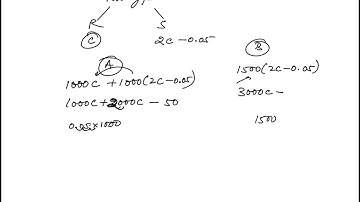 R S
C 2C-0.05
A B
1000C + 1000(2C-0.05) 1500(2C-0.05)
1000C+2000C - 50 3000C -
0.05×1000 1500